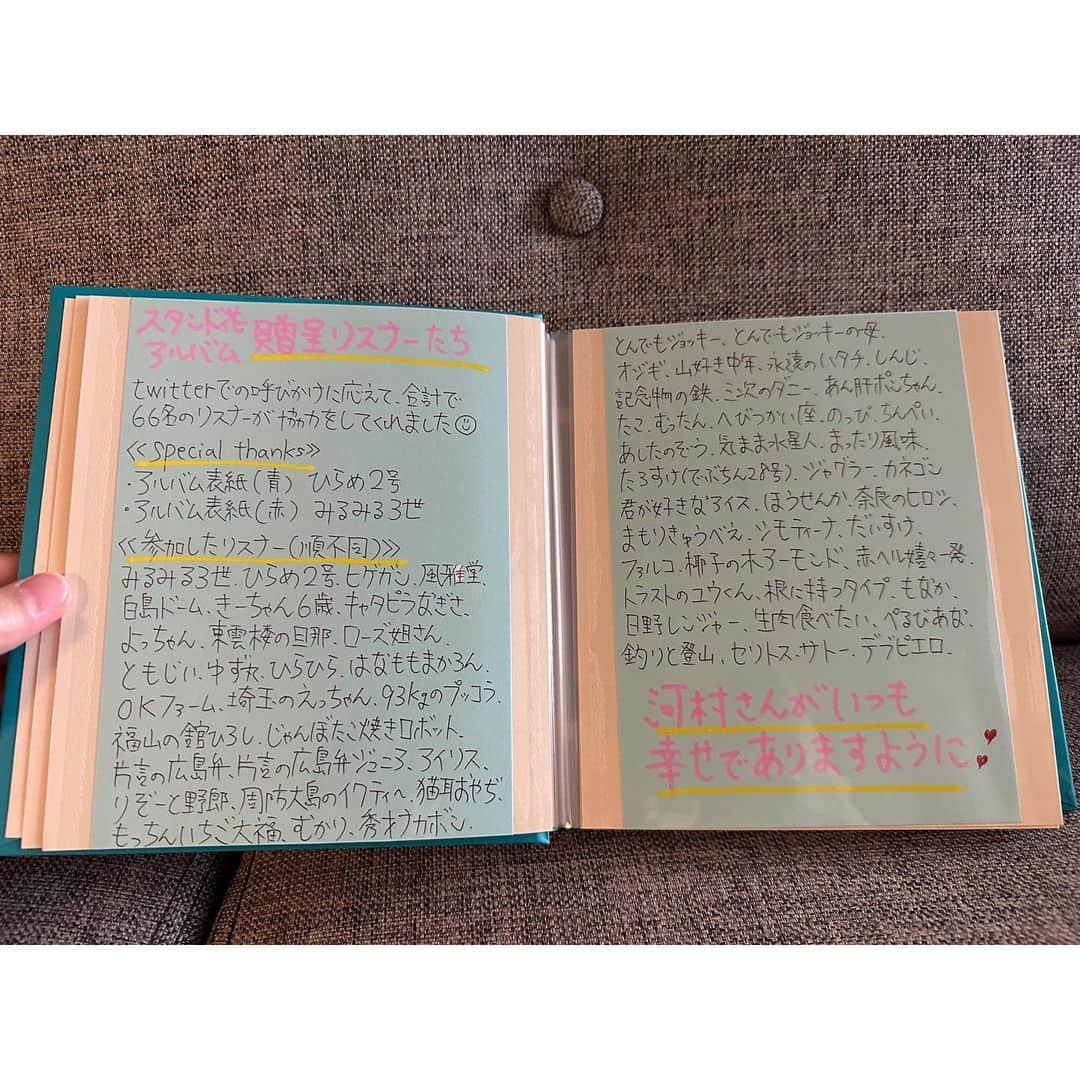 スタンド花
アルバム 贈呈リスナーたち
twitterでの呼びかけに応えて、会計で
66名のリスナーが協力をしてくれました
≪special thanks≫
・アルバム表紙(青) ひらめ2号
・アルバム表紙(赤) みるみる3世
≪参加したリスナー(順不同)≫
みるみる3世、ひらめ2号、ヒゲガン、風雅堂、
白島ドーム、きーちゃん6歳、キャタピラなぎさ、
よっちゃん、東雲楼の旦那、ローズ姐さん、
ともじい、ゆずな、ひらひら、はなももまかろん、
OKファーム、埼玉のえっちゃん、93kgのプッコラ、
福山の舘ひろし、じゃんぼたこ焼きロボット、
片言の広島弁、片言の広島弁ジュニア、アイリス、
りぞーと野郎、周防大島のイクティ〜、猫耳おやぢ、
もっちんいちご大福、むかり、秀才フカボン、
とんでもジョッキー、とんでもジョッキーの母、
オジギ、山好き中年、永遠のハタチ、しんじ、
記念物の鉄、三次のダニー、あん肝ポンちゃん、
たこ、むったん、へびつかい座、のっぴ、ちんぺい、
あしたのぞう、気まま水星人、まったり風味、
たろすけ(でぶちん28号)、ジャグラー、カネゴン
君が好きなアイス、ほうせんか、奈良のヒロシ、
まもりきゅうべえ、シモティーナ、だいすけ、
ファルコ、椰子の木アーモンド、赤ヘル嬉々一発、
トラストのユウくん、根に持つタイプ、もなか、
日野レンジャー、生肉食べたい、ぺるびあな、
釣りと登山、セリトス・サトー、デブピエロ、
河村さんがいつも
幸せでありますように